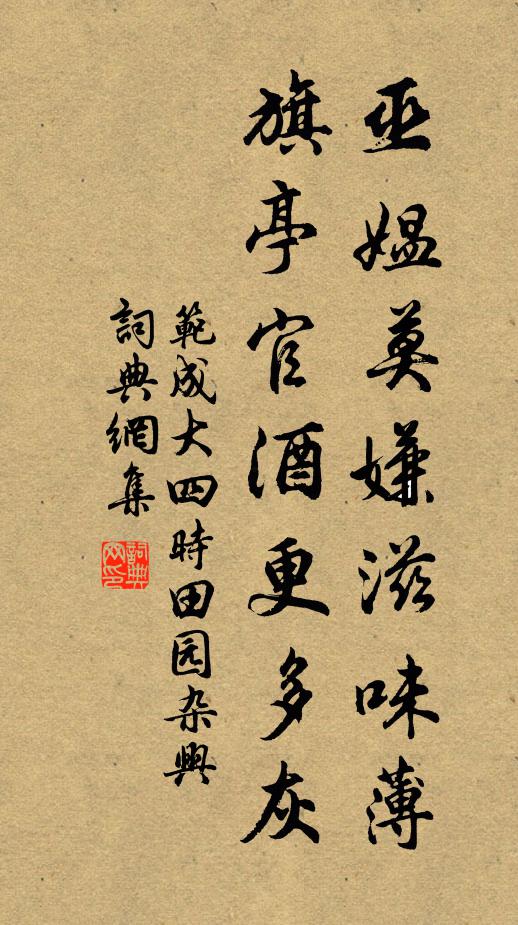 巫媪莫嫌滋味薄
旗亭官酒更多灰
範成大四時田园杂興
詞典網集
詞典网印